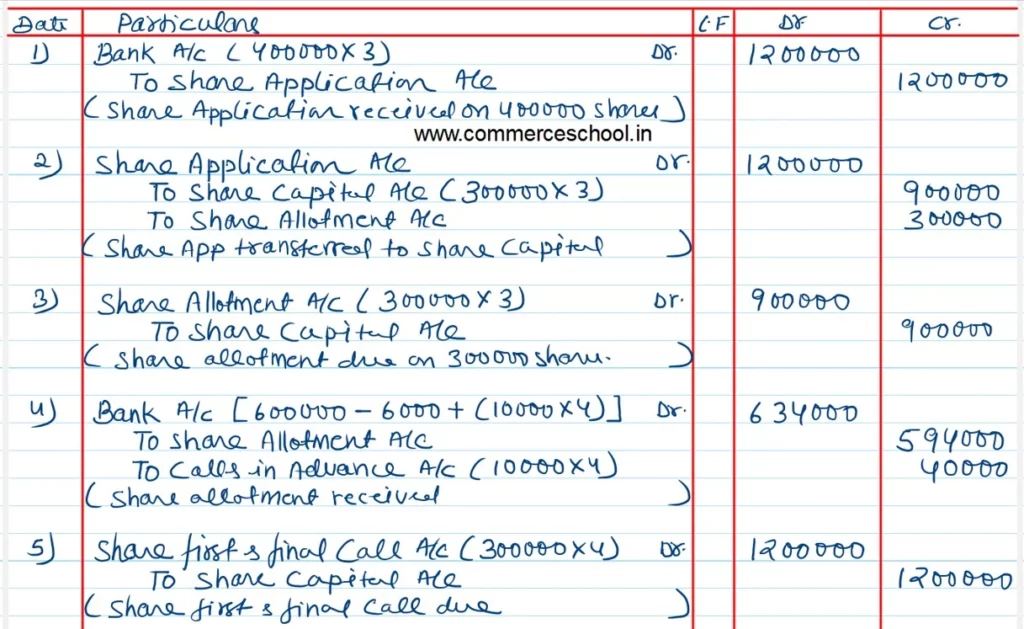 Date Particulars L.F Dr Cr.
1) Bank A/c (400000 X 3) Dr. 1200000
To Share Application A/c 1200000
(Share Application received on 400000 shares)
www.commerceschool.in
2) Share Application A/c Dr. 1200000
To Share Capital A/c (300000 X 3) 900000
To Share Allotment A/c 300000
(Share App transferred to share Capital)
3) Share Allotment A/c (300000 X 3) Dr. 900000
To Share Capital A/c 900000
(Share allotment due on 300000 share.)
4) Bank A/c [600000 – 6000 + (10000X4)] Dr. 634000
To Share Allotment A/c 594000
To Calls in Advance A/c (10000X4) 40000
(Share allotment received)
5) Share first & final Call A/c (300000X4) Dr. 1200000
To Share Capital A/c 1200000
(Share first & final Call due)